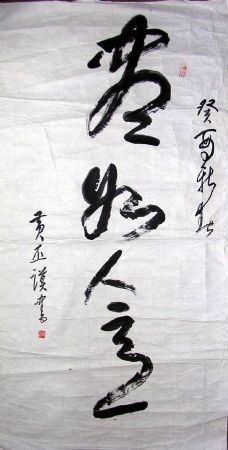 癸酉新春
盡如人意
黄丕謨书